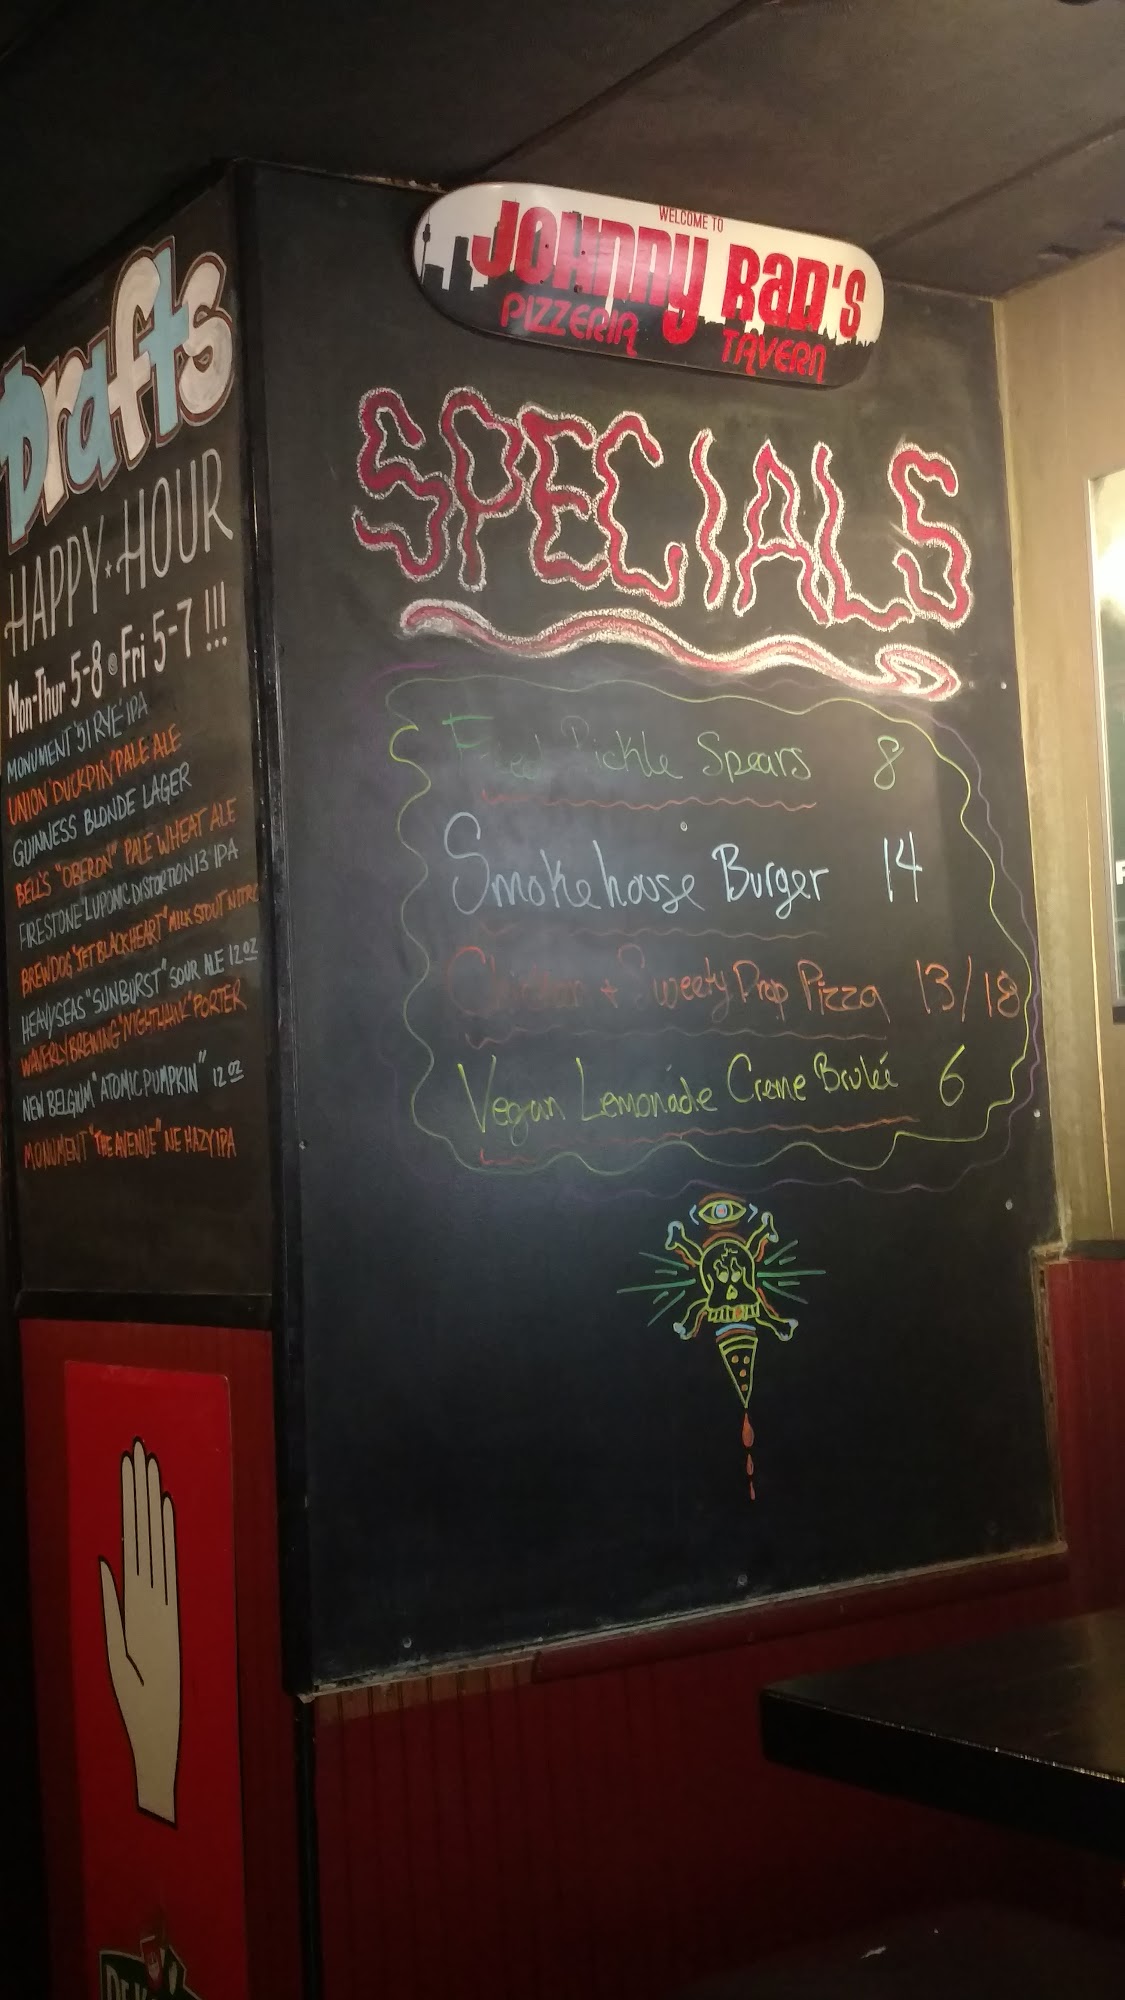 WELCOME TO
JOHNNY RAD'S
PIZZERIA TAVERN
SPECIALS
Fried Pickle Spears 8
Smokehouse Burger 14
Chicken + Sweety Drop Pizza 13/18
Vegan Lemonade Creme Brulée 6
Drafts
HAPPY HOUR
Mon-Thur 5-8 Fri 5-7 !!!
MONUMENT "51 RYE" IPA
UNION "DUCKPIN" PALE ALE
GUINNESS BLONDE LAGER
BELL'S "OBERON" PALE WHEAT ALE
FIRESTONE "LUPONIC DISTORTION 13" IPA
BREWDOG "JET BLACK HEART" MILK STOUT NITRO
HEAVY SEAS "SUNBURST" SOUR ALE 12 OZ
WAVERLY BREWING "NIGHTHAWK" PORTER
NEW BELGIUM "ATOMIC PUMPKIN" 12 OZ
MONUMENT "THE AVENUE" NE HAZY IPA